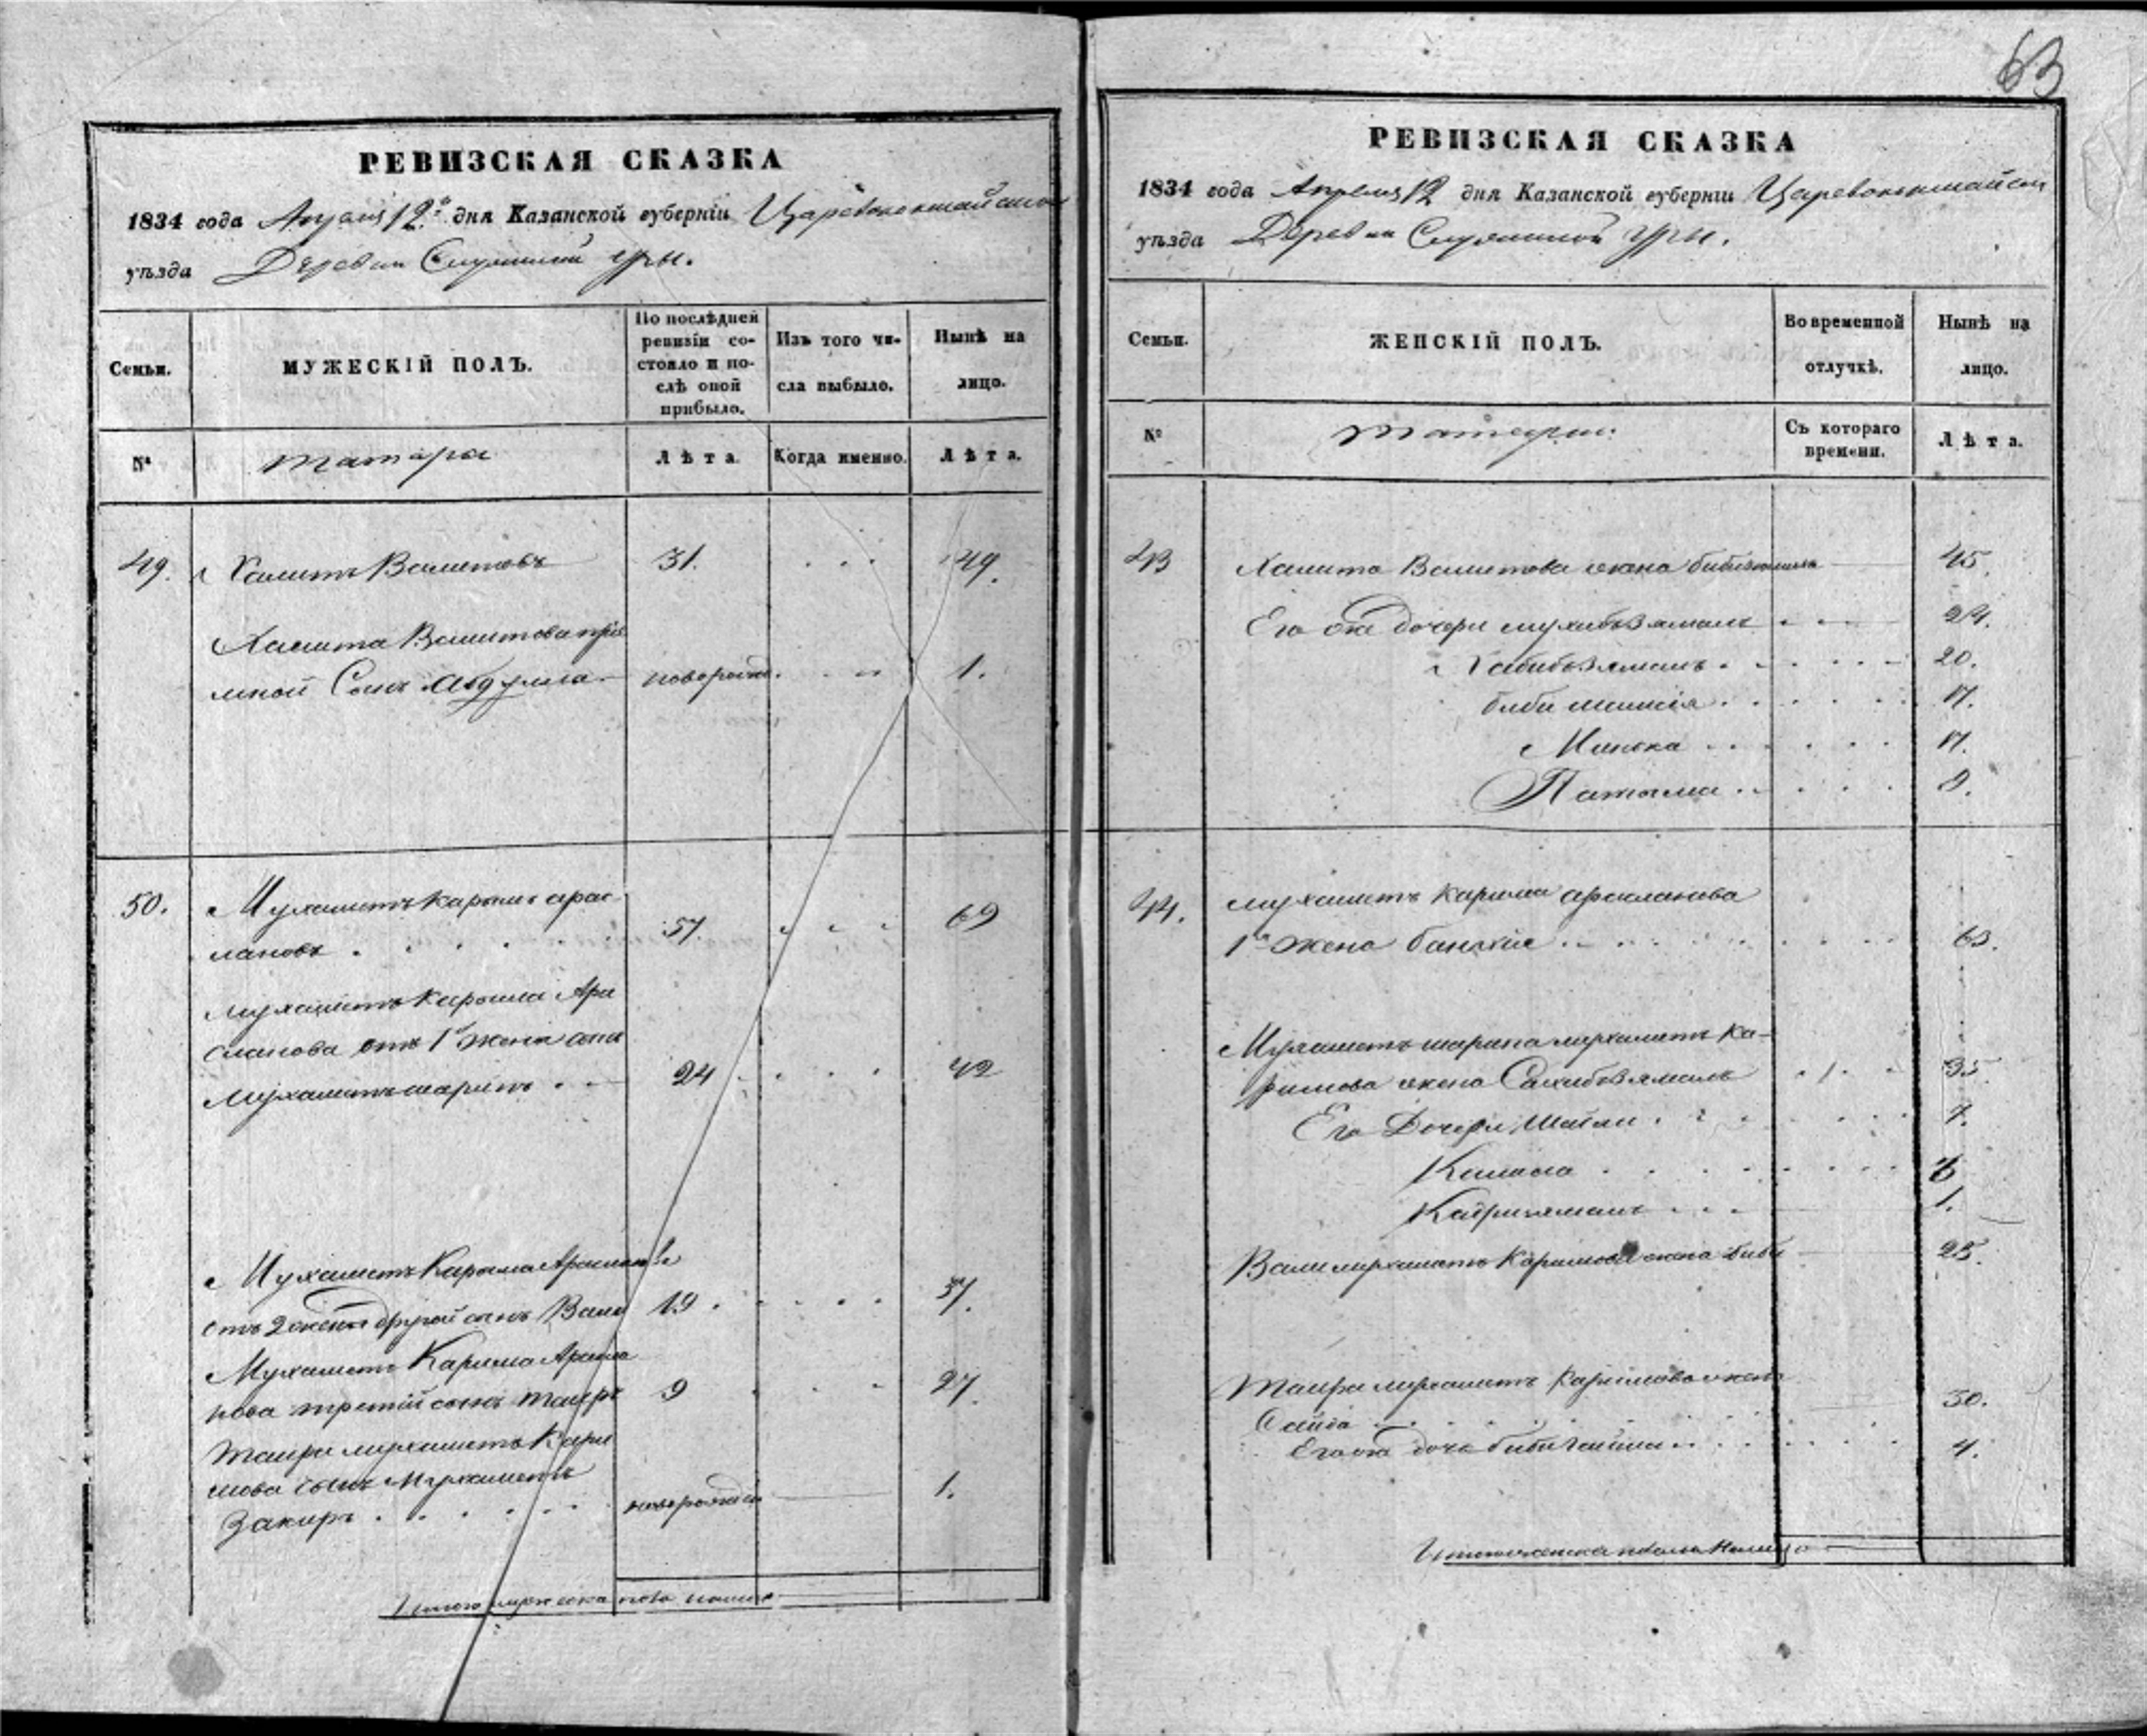 63
РЕВИЗСКАЯ СКАЗКА
1834 года Апреля 12го дня Казанской губерніи Царевококшайскаго
уѣзда Деревни Служилой Уры.
Семьи.
МУЖЕСКІЙ ПОЛЪ.
По послѣдней ревизіи состояло и послѣ оной прибыло.
Изъ того числа выбыло.
Нынѣ на лицо.
№
татара
Лѣта.
Когда именно.
Лѣта.
49. Халитъ Валитовъ 31. 49.
Халита Валитова
Сынъ Абдулла новорожд. 1.
50. Мухаметъ Карымъ арас-
лановъ 57. 69
Мухаметъ Карыма Ара
сланова отъ 1й жены сынъ
Мухаметъ шарипъ 24 42
Мухаметъ Карыма Арасланова
отъ 2 жены другой сынъ Вали 19. 37.
Мухаметъ Карима
третій сынъ Таиръ 9 27.
Таира мухаметъ Кари
мова сынъ Мухаметъ
Закиръ новорожден 1.
Итого мужеска пола налицо
РЕВИЗСКАЯ СКАЗКА
1834 года Апреля 12 дня Казанской губерніи Царевококшайск
уѣзда Деревни Служилой Уры.
Семьи.
ЖЕНСКІЙ ПОЛЪ.
Во временной отлучкѣ.
Нынѣ на лицо.
№
татарки
Съ котораго времени.
Лѣта.
43 Халита Валитова жена 45.
Его же дочери мухибзямалъ 24.
Хабибзямалъ 20.
биби 17.
17.
Патыма 9.
44. Мухаметъ Карима арасланова
1я жена 63.
Мухаметъ шарипа мухаметъ Ка-
римова жена Сахибзямалъ 35
Его Дочери 7.
1.
Вали мухаметъ Каримова жена биби 25.
Таира мухаметъ Каримова жена
Сайда 30.
Его же дочь биби 4.
Итого женска пола налицо